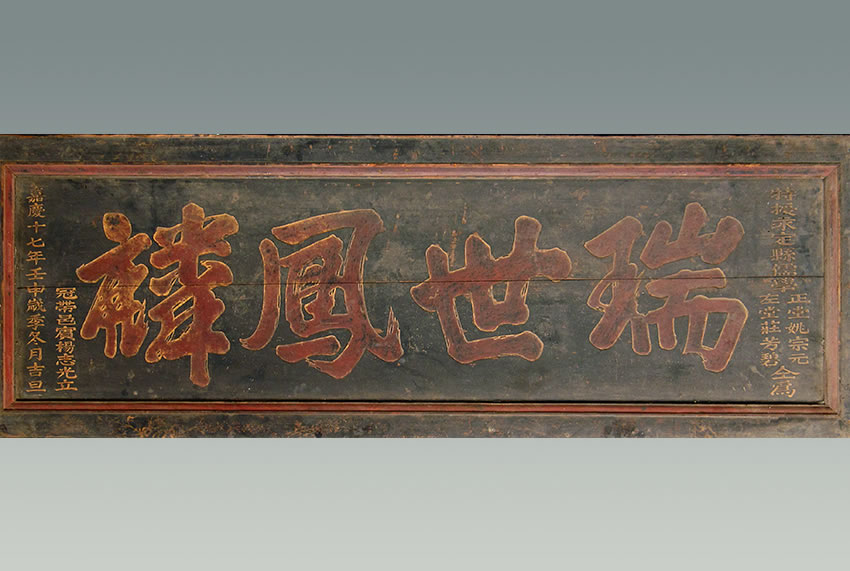 特授永定縣儒學
正堂姚宗元
左堂莊芳碧
仝為
瑞世鳳禕
冠帶邑賓楊志光立
嘉慶十七年壬申歲季冬月吉旦